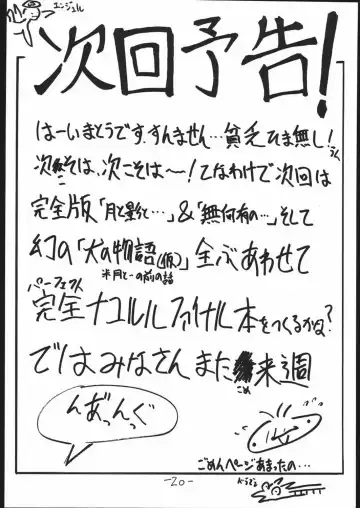 エンジェル
次回予告!
はーいまとうです、すんません…貧乏ひま無し!
次こそは、次こそは〜!てなわけで次回は
完全版「月と影と…」&「無何有の…」そして
幻の「犬の物語(仮)」全ぶあわせて
※月と…の前の話
パーフェクト
完全ナユルルファイナル本をつくるかな?
ではみなさんまた来週
ごめんページあまったの…
-20-